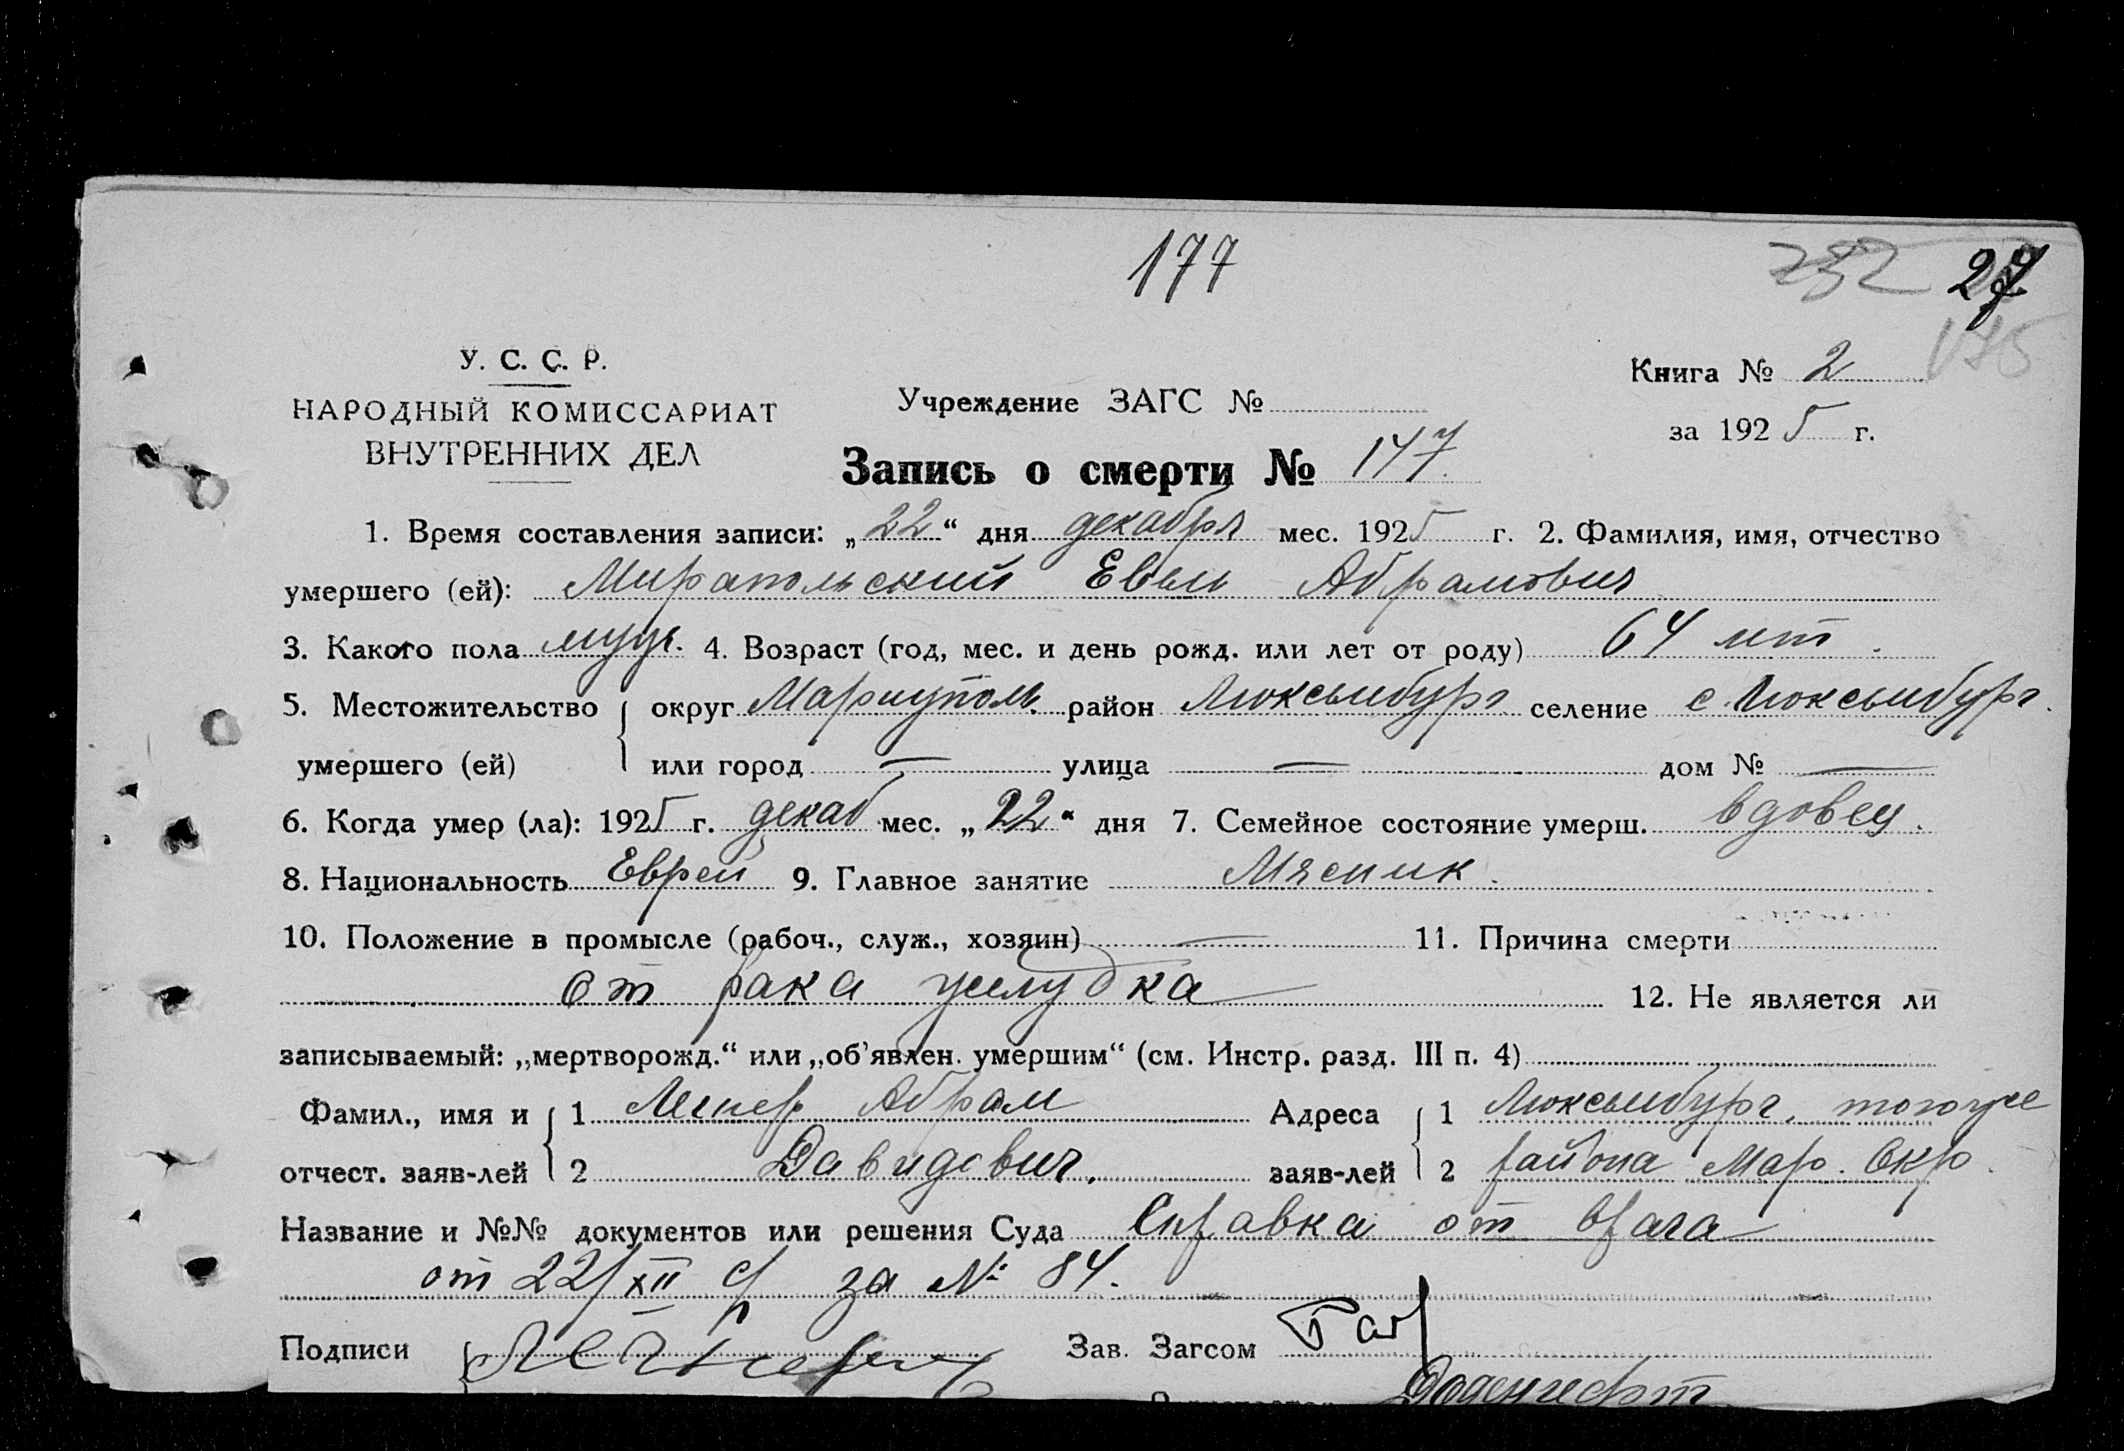 177
232 27
175
У. С. С. Р.
НАРОДНЫЙ КОМИССАРИАТ
ВНУТРЕННИХ ДЕЛ
Учреждение ЗАГС №
Книга № 2
за 1925 г.
Запись о смерти № 147
1. Время составления записи: „22“ дня декабря мес. 1925 г. 2. Фамилия, имя, отчество
умершего (ей): Мирапольский Евель Абрамович
3. Какого пола муж. 4. Возраст (год, мес. и день рожд. или лет от роду) 64 лет.
5. Местожительство округ Мариуполь. район Люксембург селение с. Люксембург.
умершего (ей) или город — улица — дом № —
6. Когда умер (ла): 1925 г. декаб мес. „22“ дня 7. Семейное состояние умерш. вдовец.
8. Национальность Еврей 9. Главное занятие Мясник.
10. Положение в промысле (рабоч., служ., хозяин) — 11. Причина смерти
от рака желудка 12. Не является ли
записываемый: „мертворожд.“ или „об’явлен. умершим“ (см. Инстр. разд. III п. 4)
Фамил., имя и 1 Абрам Адреса 1 Люксембург, тогоже
отчест. заяв-лей 2 Давидович. заяв-лей 2 района Мар. Окр.
Название и №№ документов или решения Суда Справка от врача
от 22/XII с/г за № 84.
Подписи Зав. Загсом